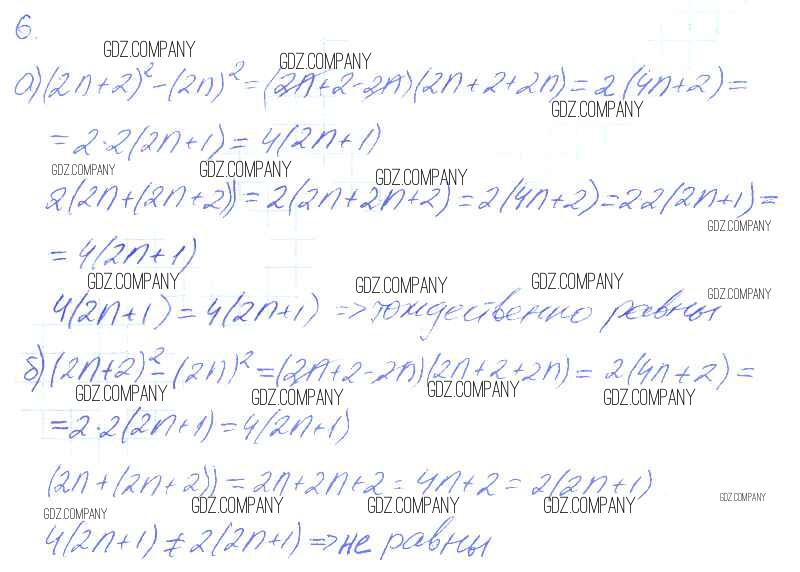 6.
GDZ.COMPANY GDZ.COMPANY
а) (2n+2)² - (2n)² = (2n+2-2n)(2n+2+2n) = 2(4n+2) =
GDZ.COMPANY
= 2·2(2n+1) = 4(2n+1)
GDZ.COMPANY GDZ.COMPANY GDZ.COMPANY
2(2n+(2n+2)) = 2(2n+2n+2) = 2(4n+2) = 2·2(2n+1) =
GDZ.COMPANY
= 4(2n+1)
GDZ.COMPANY GDZ.COMPANY GDZ.COMPANY GDZ.COMPANY
4(2n+1) = 4(2n+1) => тождественно равны
б) (2n+2)² - (2n)² = (2n+2-2n)(2n+2+2n) = 2(4n+2) =
GDZ.COMPANY GDZ.COMPANY GDZ.COMPANY GDZ.COMPANY
= 2·2(2n+1) = 4(2n+1)
(2n+(2n+2)) = 2n+2n+2 = 4n+2 = 2(2n+1)
GDZ.COMPANY GDZ.COMPANY GDZ.COMPANY GDZ.COMPANY GDZ.COMPANY
4(2n+1) ≠ 2(2n+1) => не равны